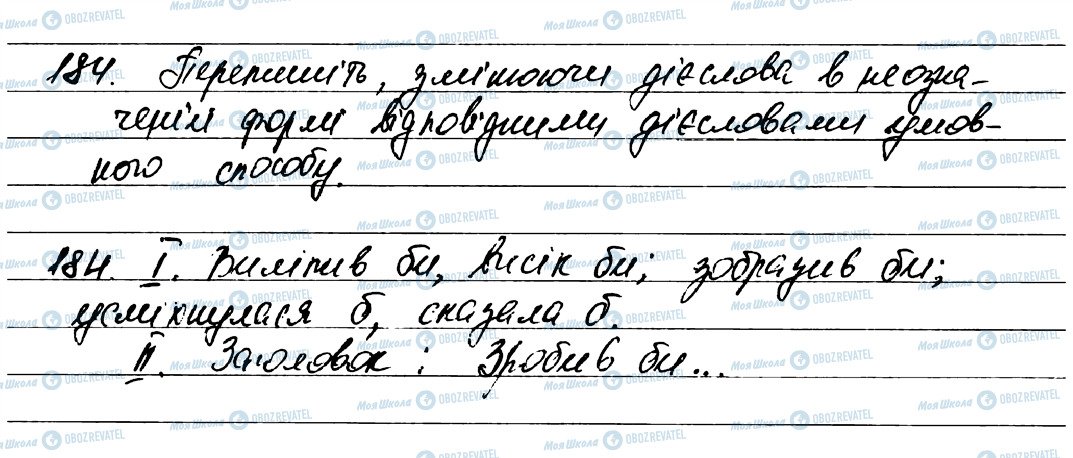 184. Перепишіть, змінюючи дієслова в неозна-
ченій формі відповідними дієсловами умов-
ного способу.
184. І. Виліпив би, висік би; зобразив би;
усміхнулася б, сказала б.
ІІ. Заголовок: Зробив би...